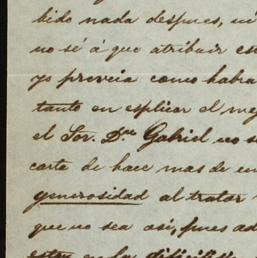 bido nada despues, ni
no sé á que atribuir es
yo preveia como habra
tanto en esplicar el me
el Sor. Dn. Gabriel no s
carta de hace mas de un
generosidad al tratar
que no sea asi, pues ad
estoy en la dificilis